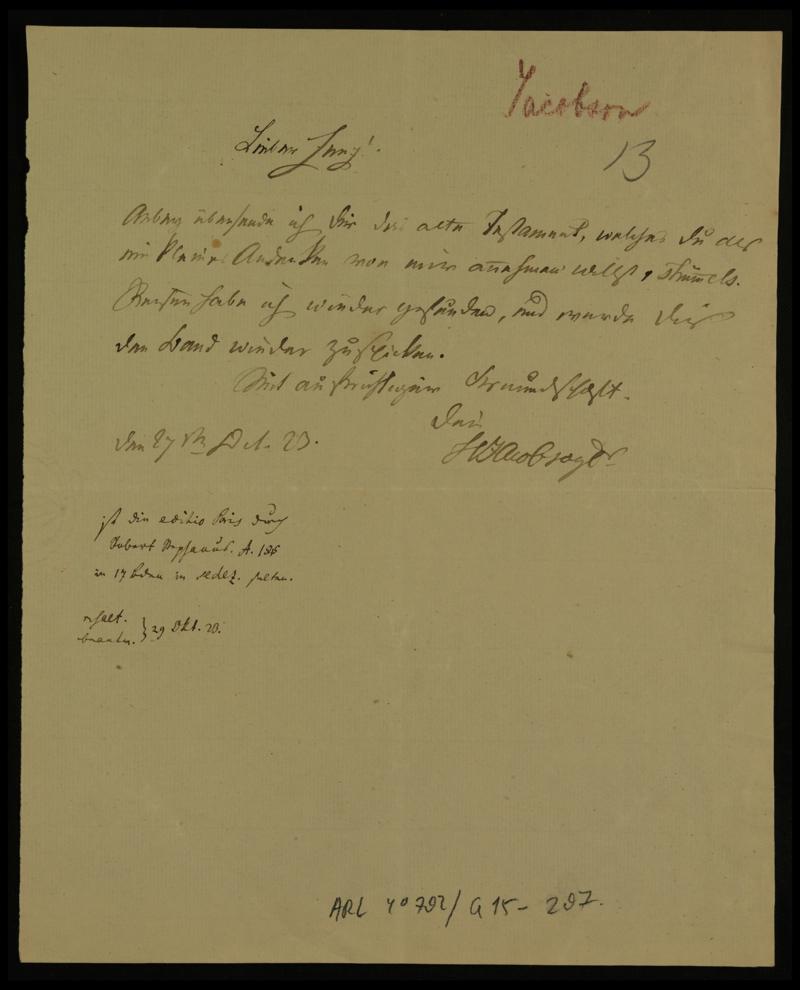 Jacobson
13
Lieber Zunz!
Anbey übersende ich Dir das alte Testament, welches Du als
ein kleines Andenken von mir annehmen willst,
habe ich wieder gefunden, und werde Dir
den Band wieder zuschicken.
Mit aufrichtiger Freundschaft.
Dein
den 27ten Oct. 23.
ist die editio Paris durch
Robert Stephanus. A.
in 17 Bden in sedez. selten.
erhalt.
beantw. } 29 Okt. 23.
ARC 4° 792/ G 15 - 297.